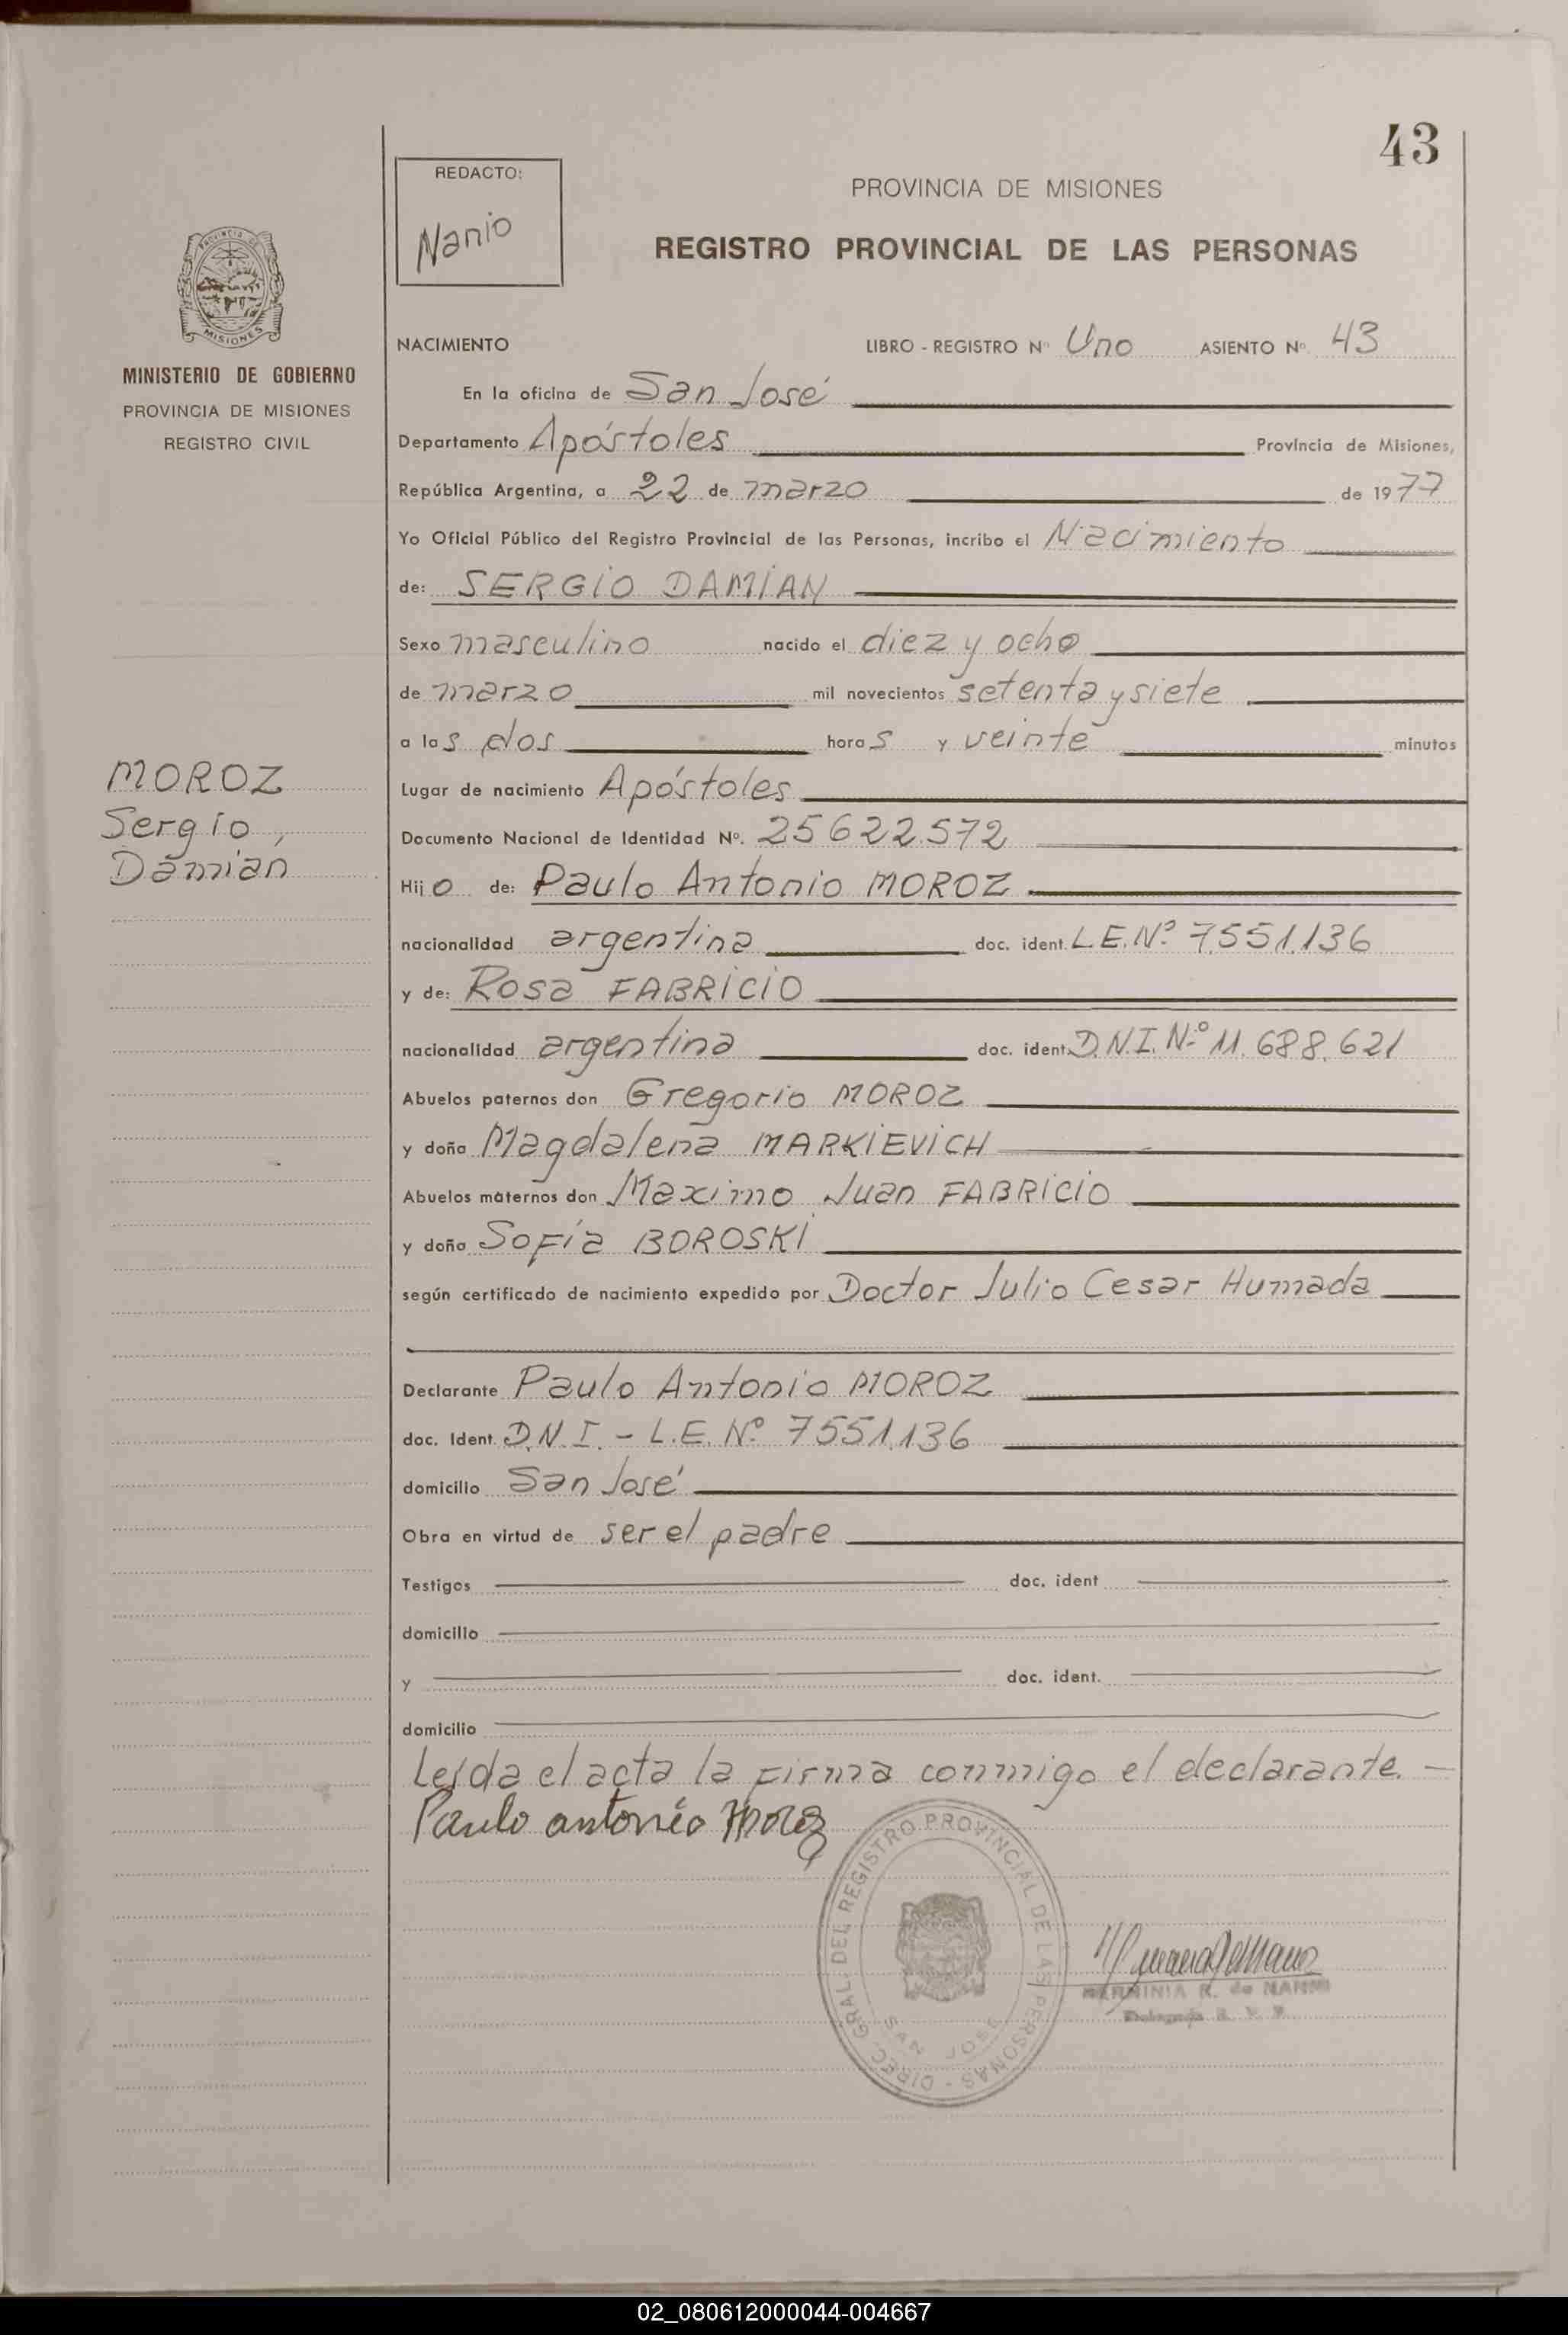 43
REDACTO:
Nanio
PROVINCIA DE MISIONES
REGISTRO PROVINCIAL DE LAS PERSONAS
PROVINCIA DE
MISIONES
MINISTERIO DE GOBIERNO
PROVINCIA DE MISIONES
REGISTRO CIVIL
MOROZ
Sergio,
Damian
NACIMIENTO LIBRO - REGISTRO Nº Uno ASIENTO Nº 43
En la oficina de San José
Departamento Apóstoles Provincia de Misiones,
República Argentina, a 22 de marzo de 1977
Yo Oficial Público del Registro Provincial de las Personas, incribo el Nacimiento
de: SERGIO DAMIAN
Sexo masculino nacido el diez y ocho
de marzo mil novecientos setenta y siete
a las dos horas y veinte minutos
Lugar de nacimiento Apóstoles
Documento Nacional de Identidad Nº. 25622.572
Hijo de: Paulo Antonio MOROZ
nacionalidad argentina doc. ident. L.E.Nº 7.551.136
y de: Rosa FABRICIO
nacionalidad argentina doc. ident. D.N.I. Nº 11.688.621
Abuelos paternos don Gregorio MOROZ
y doña Magdalena MARKIEVICH
Abuelos maternos don Maximo Juan FABRICIO
y doña Sofía BOROSKI
según certificado de nacimiento expedido por Doctor Julio Cesar Humada
Declarante Paulo Antonio MOROZ
doc. Ident. D.N.I. - L.E. Nº 7551.136
domicilio San José
Obra en virtud de ser el padre
Testigos doc. ident
domicilio
y doc. ident.
domicilio
Leída el acta la firma conmigo el declarante. -
Paulo antonio Moroz
DIREC. GRAL. DEL REGISTRO PROVINCIAL DE LAS PERSONAS -
SAN JOSE
HERMINIA R. de NANNI
02_080612000044-004667